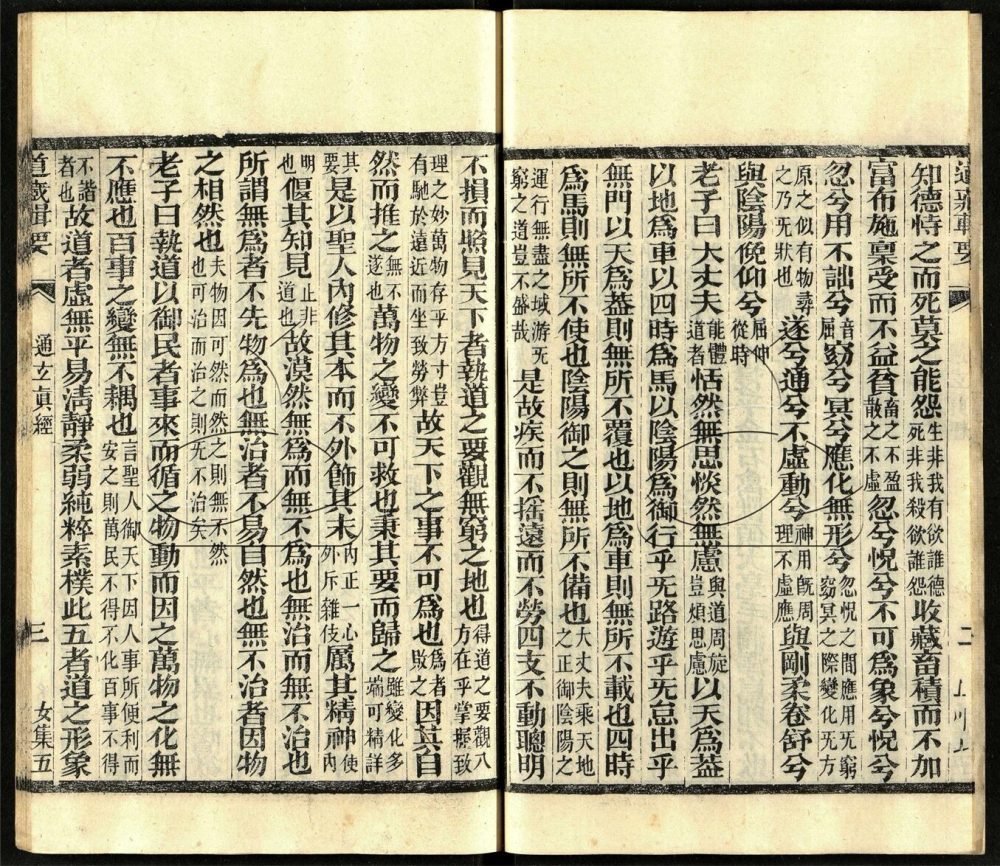 道藏輯要
知德恃之而死莫之能怨生非我有欲誰德死非我殺欲誰怨收藏畜積而不加
富布施稟受而不益貧畜之不盈散之不虛忽兮怳兮不可為象兮怳兮
忽兮用不詘兮音屈窈兮冥兮應化無形兮忽怳之間應用无窮窈冥之際變化无方
原之似有物尋之乃无狀也遂兮通兮不虛動兮神用旣周理不虛應與剛柔卷舒兮
與陰陽俛仰兮屈伸從時
老子曰大丈夫能體道者恬然無思惔然無慮與道周旋豈煩思慮以天為葢
以地為車以四時為馬以陰陽為御行乎无路遊乎无怠出乎
無門以天為葢則無所不覆也以地為車則無所不載也四時
為馬則無所不使也陰陽御之則無所不備也大丈夫乘天地之正御陰陽之
運行無盡之域游无窮之道豈不盛哉是故疾而不摇遠而不勞四支不動聰明
二
不損而照見天下者執道之要觀無窮之地也得道之要觀八方在乎掌握致
理之妙萬物存乎方寸豈有馳於遠近而坐致勞弊故天下之事不可為也為者敗之因其自
然而推之無不遂也萬物之變不可救也秉其要而歸之雖變化多端可精詳
其要是以聖人內修其本而不外飾其末內正一心外斥雜伎厲其精神使內
明也偃其知見止非道也故漠然無為而無不為也無治而無不治也
所謂無為者不先物為也無治者不易自然也無不治者因物
之相然也夫物因可然而然之則無不然也可治而治之則无不治矣
老子曰執道以御民者事來而循之物動而因之萬物之化無
不應也百事之變無不耦也言聖人御天下因人事所便利而安之則萬民不得不化百事不得
不諧者也故道者虛無平易清靜柔弱純粹素樸此五者道之形象
道藏輯要
通玄眞經
三
女集五